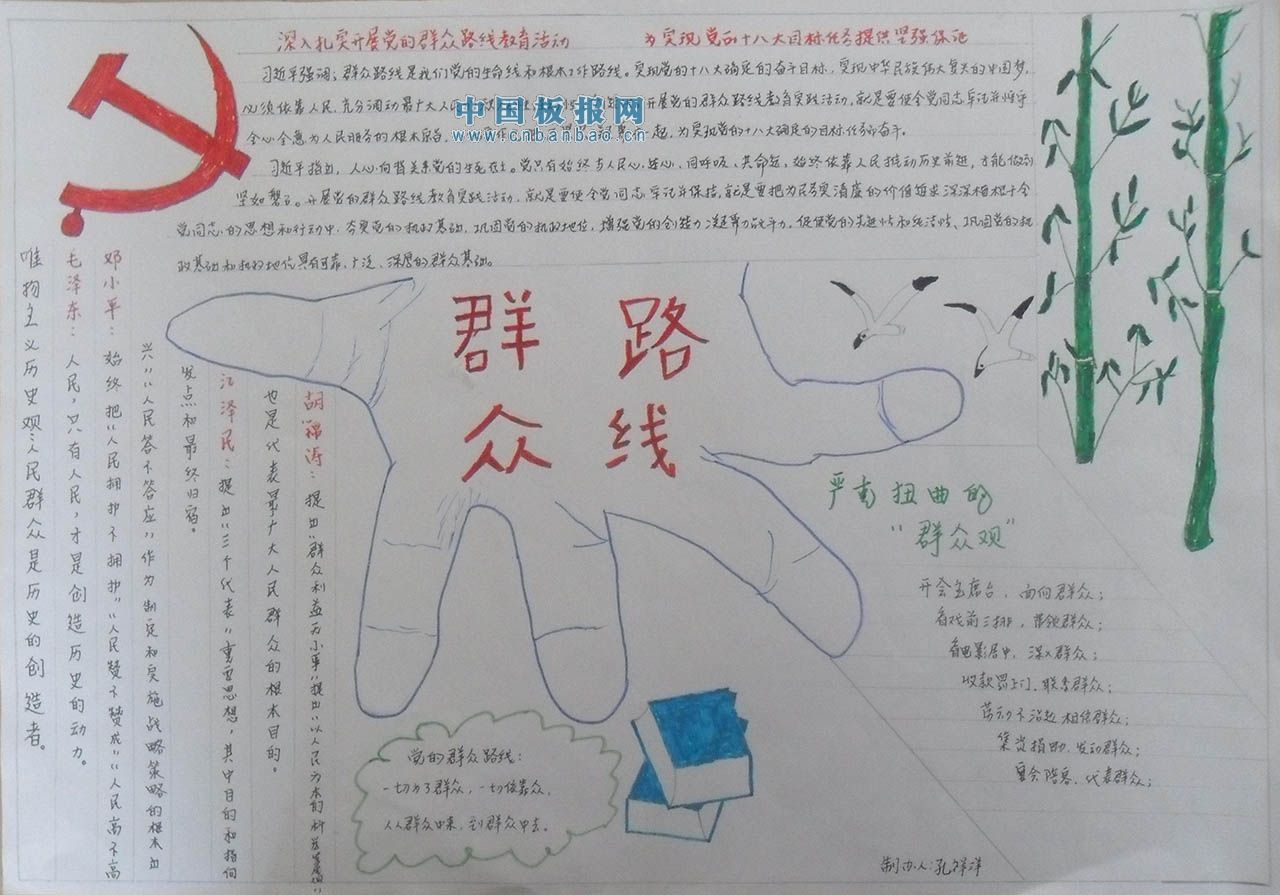 深入扎实开展党的群众路线教育活动 为实现党的十八大目标任务提供坚强保证
习近平强调：群众路线是我们党的生命线和根本工作路线。实现党的十八大确定的奋斗目标，实现中华民族伟大复兴的中国梦，
必须依靠人民，充分调动最广大人 开展党的群众路线教育实践活动，就是要使全党同志牢记并恪守
全心全意为人民服务的根本宗旨， 起，为实现党的十八大确定的目标任务而奋斗。
中国板报网
www.cnbanbao.cn
习近平指出，人心向背关系党的生死存亡。党只有始终与人民心连心、同呼吸、共命运，始终依靠人民推动历史前进，才能做到
坚如磐石。开展党的群众路线教育实践活动，就是要使全党同志牢记并保持，就是要把为民务实清廉的价值追求深深植根于全
党同志的思想和行动中，夯实党的执政基础，巩固党的执政地位，增强党的创造力凝聚力战斗力，促使党的先进性和纯洁性、巩固党的执
政基础和执政地位具有可靠、广泛、深厚的群众基础。
群众
路线
唯物主义历史观：人民群众是历史的创造者。
毛泽东：人民，只有人民，才是创造历史的动力。
邓小平：始终把“人民拥护不拥护”“人民赞不赞成”“人民高不高
兴”“人民答不答应”作为制定和实施战略策略的根本出
发点和最终归宿。
江泽民：提出“三个代表”重要思想，其中目的和指向
也是代表最广大人民群众的根本目的。
胡锦涛：提出“群众利益无小事”提出“以人民为本的科学发展观”
党的群众路线：
一切为了群众，一切依靠群众，
从群众中来，到群众中去。
严肃扭曲的
“群众观”
开会主席台，面向群众；
看戏前三排，带领群众；
看电影居中，深入群众；
收款罚上门、联系群众；
劳动不沾边 相信群众；
集资捐助、发动群众；
宴会陪客，代表群众；
制办人：孔祥洋